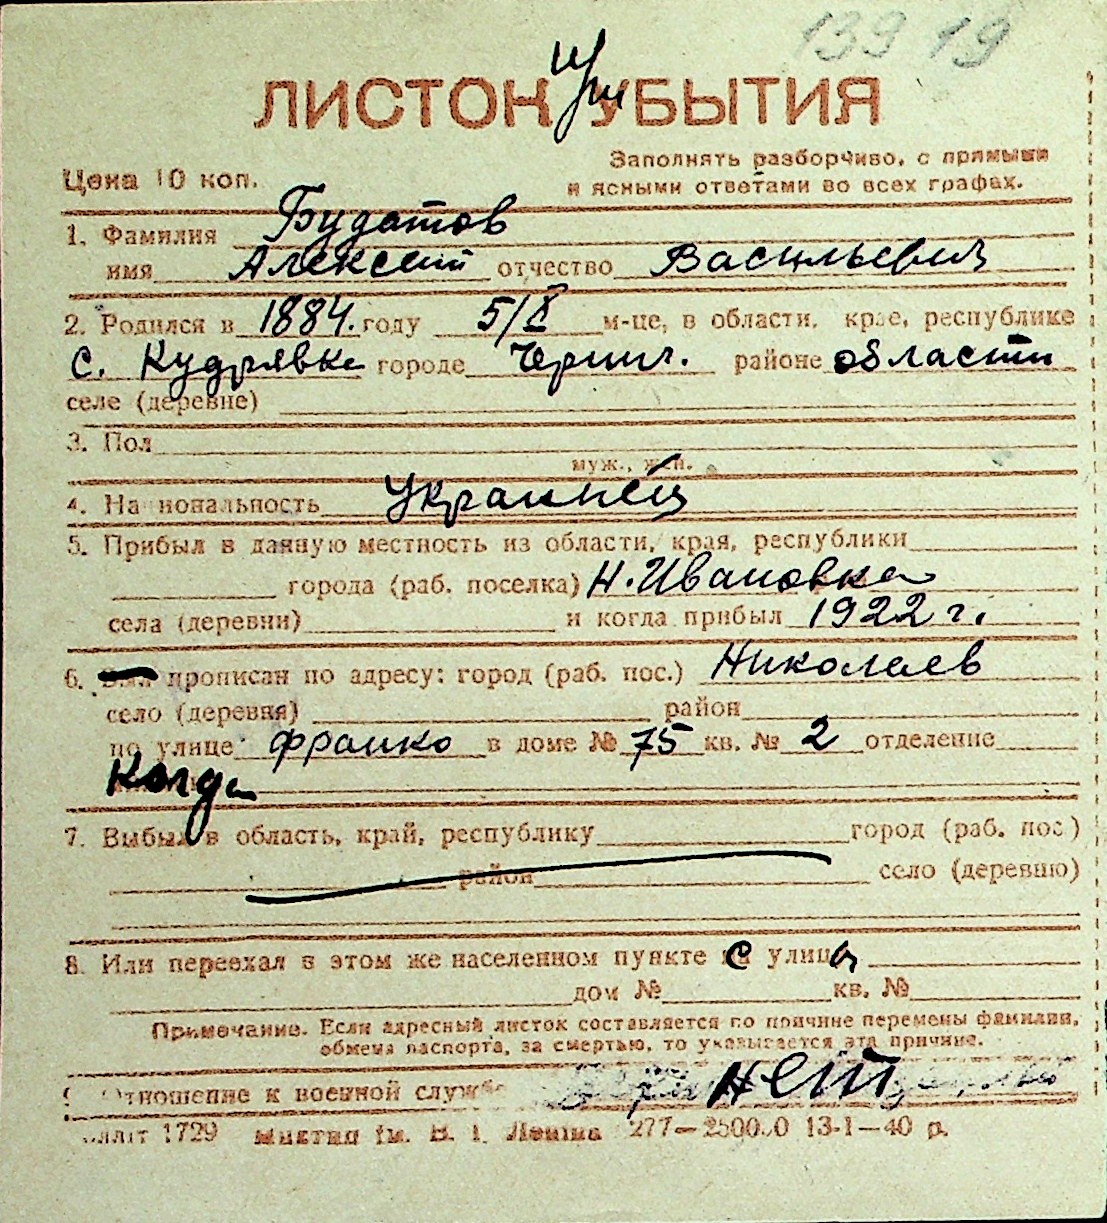 139 19
ЛИСТОК при УБЫТИЯ
Цена 10 коп.
Заполнять разборчиво, с прямыми
и ясными ответами во всех графах.
1. Фамилия Будатов
имя Алексей отчество Васильевич
2. Родился в 1884. году 5/X м-це, в области, крае, республике
с. Кудрявка городе Черниг. районе области
селе (деревне)
3. Пол
муж., жен.
4. Национальность Украинец
5. Прибыл в данную местность из области, края, республики
города (раб. поселка) Н. Ивановка
села (деревни) и когда прибыл 1922 г.
6. прописан по адресу: город (раб. пос.) Николаев
село (деревня) район
по улице Франко в доме № 75 кв. № 2 отделение
Когда
7. Выбыл в область, край, республику город (раб. пос.)
район село (деревню)
8. Или переехал в этом же населенном пункте с улицы
дом № кв. №
Примечание. Если адресный листок составляется по причине перемены фамилии,
обмена паспорта, за смертью, то указывается эта причина.
Отношение к военной службе нет
1729 277—2500.0 13-1—40 р.